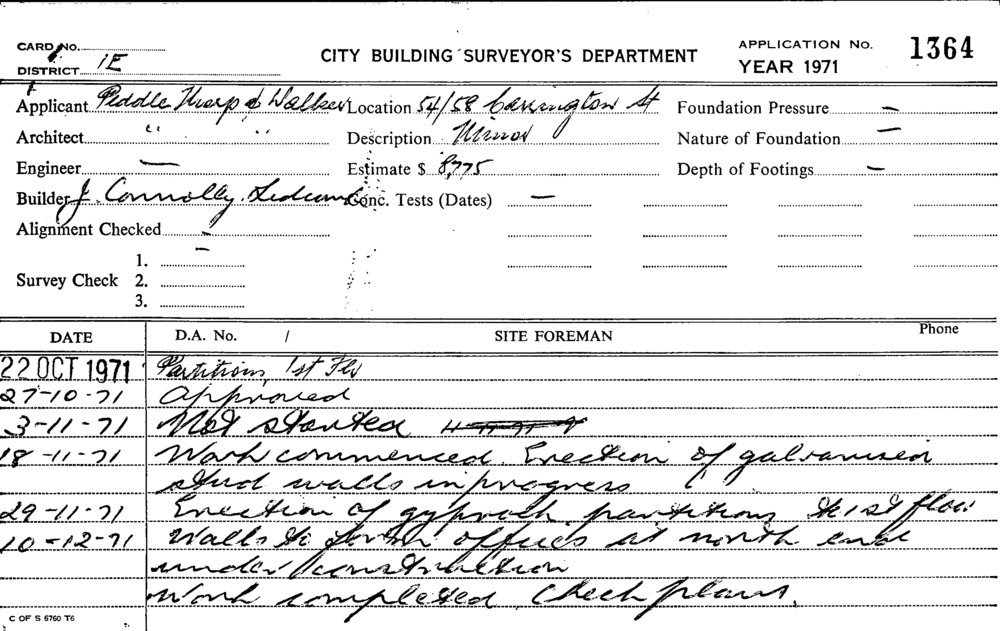 CARD NO.
DISTRICT 1E
CITY BUILDING SURVEYOR'S DEPARTMENT
APPLICATION No. 1364
YEAR 1971
Applicant Peddle Thorp & Walker Location 54/58 Carrington St Foundation Pressure —
Architect " " Description Minor Nature of Foundation —
Engineer — Estimate $ 8,775 Depth of Footings —
Builder J. Connolly Conc. Tests (Dates) —
Alignment Checked —
Survey Check 1. —
2.
3.
DATE D.A. No. / SITE FOREMAN Phone
22 OCT 1971 Partitions, 1st Flr
27-10-71 Approved
3-11-71 Not started
18-11-71 Work commenced. Erection of galvanised
stud walls in progress
29-11-71 Erection of gyprock partitions to 1st floor
10-12-71 Walls to form offices at north end
under construction
Work completed. Check plans.
C OF S 6760 T6